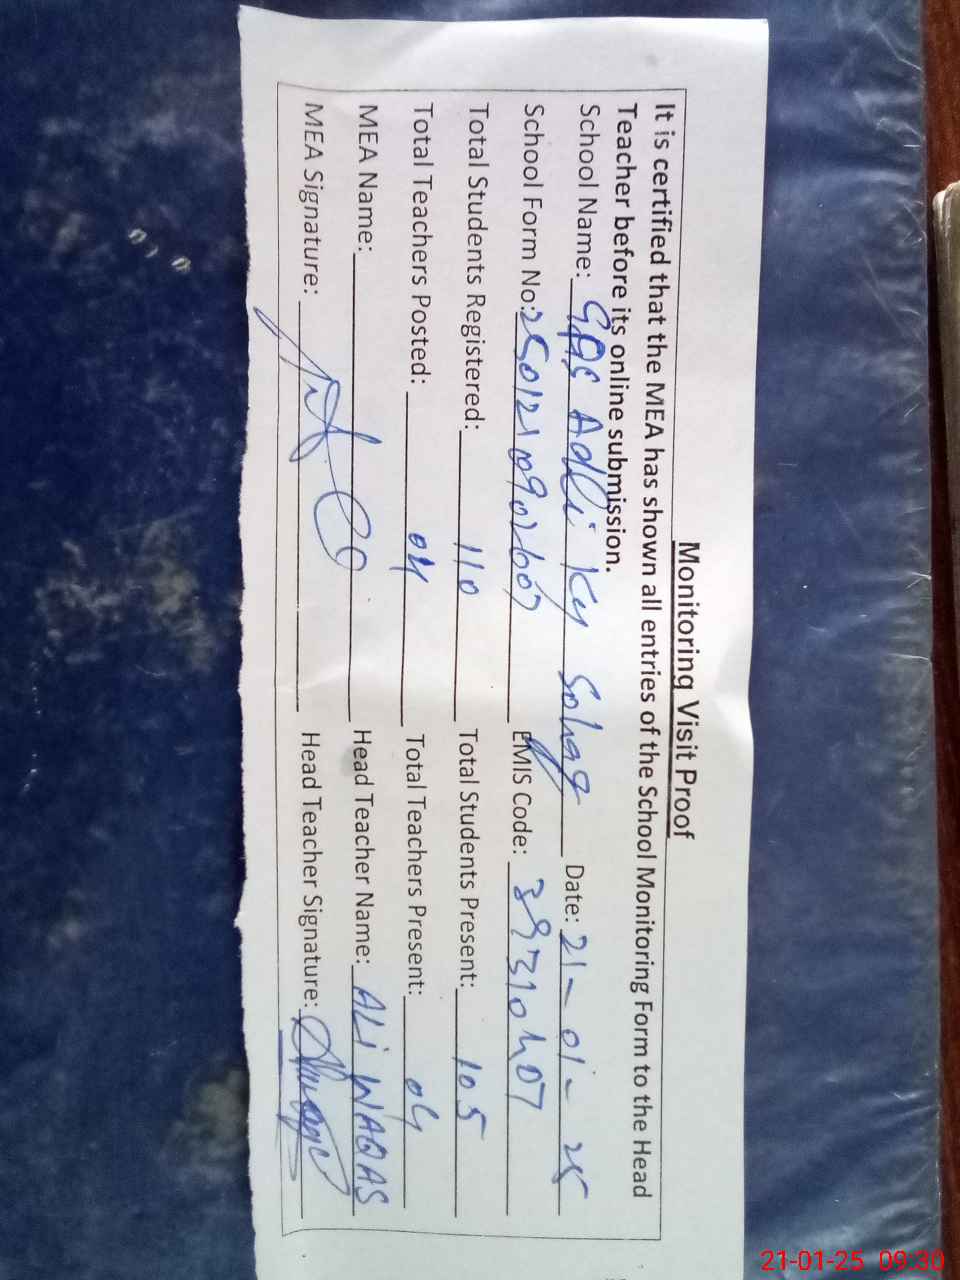 Monitoring Visit Proof
It is certified that the MEA has shown all entries of the School Monitoring Form to the Head
Teacher before its online submission.
School Name: GPS Adli Ky Sohag Date: 21-01-25
School Form No: EMIS Code:
Total Students Registered: 110 Total Students Present: 105
Total Teachers Posted: 04 Total Teachers Present: 04
MEA Name: Head Teacher Name: ALi WAQAS
MEA Signature: Head Teacher Signature:
21-01-25 09:30